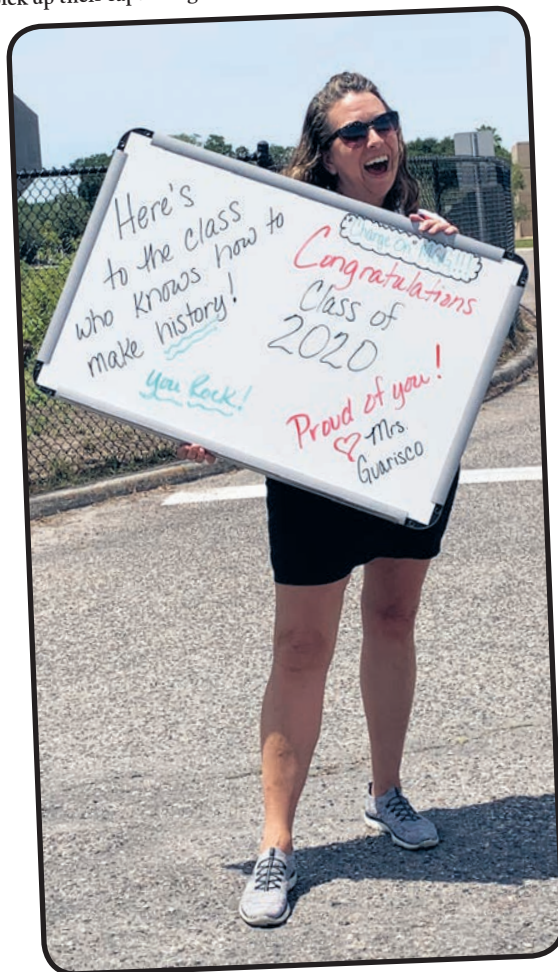 pick up their cap
Here's
to the class
who knows how to
make history!
You Rock!
Charge On
Congratulations
Class of
2020
Proud of you!
♡ Mrs.
Guarisco